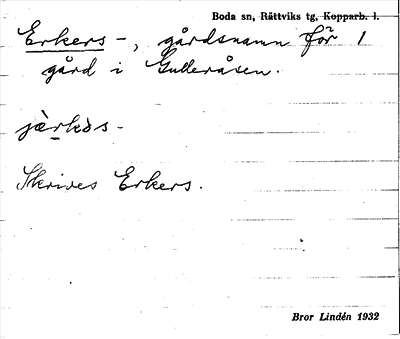 Boda sn, Rättviks tg, Kopparb. l.
Erkers -, gårdsnamn för 1
gård i Gulleråsen.
jàrkəs -
Skrives Erkers.
Bror Lindén 1932